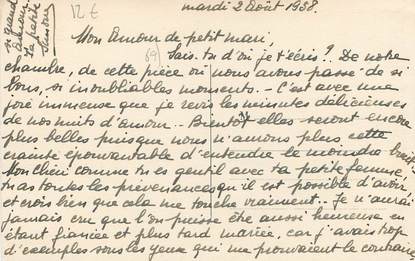 mardi 2 Août 1938.
12 €
si grand
Amour.
Ta petite
Simone
Mon Amour de petit mari,
69)
Sais-tu d'où je t'écris? De notre
chambre, de cette pièce où nous avons passé de si
bons, si inoubliables moments. C'est avec une
joie immense que je revis les minutes délicieuses
de nos nuits d'amour.. Bientôt elles seront encore
plus belles puisque nous n'aurons plus cette
crainte épouvantable d'entendre le moindre bruit.
Mon chéri comme tu es gentil avec ta petite femme,
tu as toutes les prévenances qu'il est possible d'avoir
et crois bien que cela me touche vraiment. Je n'aurai
jamais cru que l'on puisse être aussi heureuse en
étant fiancée et plus tard mariée, car j'avais trop
d'exemples sous les yeux qui me prouvaient le contraire